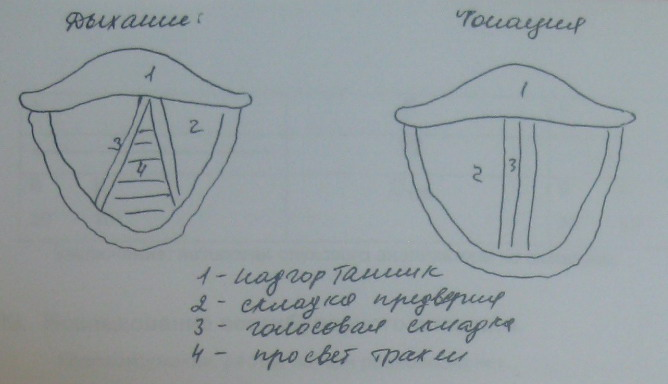 Дыхание:
Тонация
1
1
3
2
4
2
3
1 - надгортанник
2 - складка предверия
3 - голосовая складка
4 - просвет трахеи